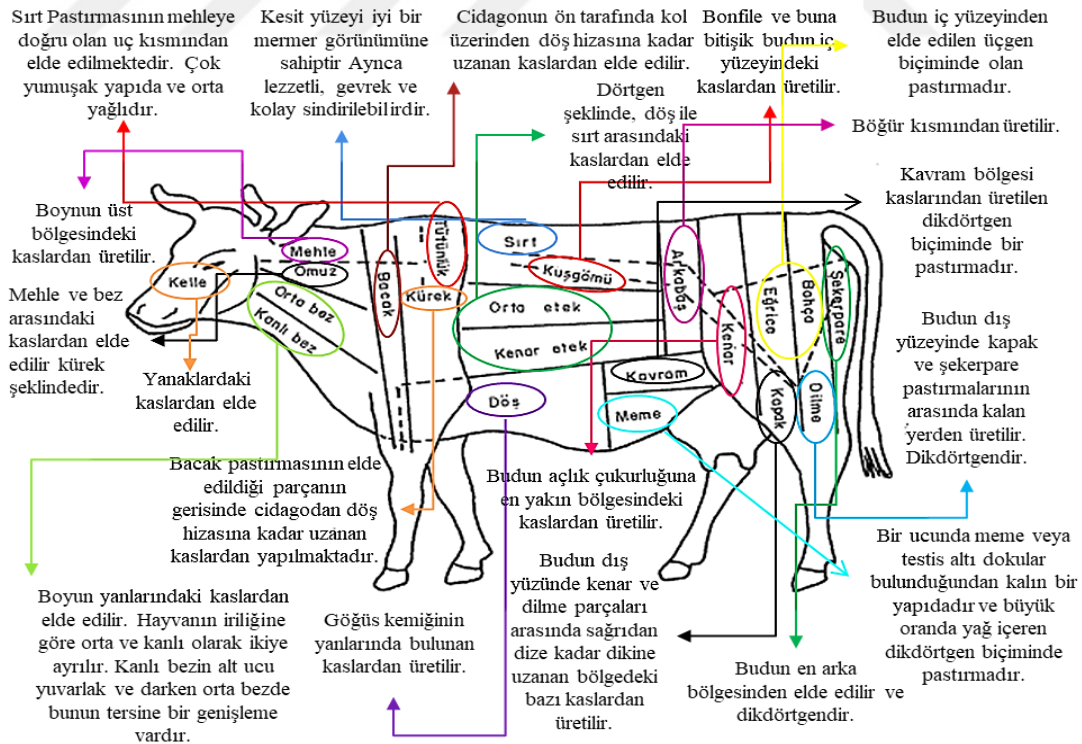 Sırt Pastırmasının mehleye
doğru olan uç kısmından
elde edilmektedir. Çok
yumuşak yapıda ve orta
yağlıdır.
Kesit yüzeyi iyi bir
mermer görünümüne
sahiptir Ayrıca
lezzetli, gevrek ve
kolay sindirilebilirdir.
Cidagonun ön tarafında kol
üzerinden döş hizasına kadar
uzanan kaslardan elde edilir.
Bonfile ve buna
bitişik budun iç
yüzeyindeki
kaslardan üretilir.
Budun iç yüzeyinden
elde edilen üçgen
biçiminde olan
pastırmadır.
Dörtgen
şeklinde, döş ile
sırt arasındaki
kaslardan elde
edilir.
Böğür kısmından üretilir.
Kavram bölgesi
kaslarından üretilen
dikdörtgen
biçiminde bir
pastırmadır.
Boynun üst
bölgesindeki
kaslardan üretilir.
Mehle
Omuz
Kelle
Orta bez
Kanlı bez
Bacak
Tütünlük
Kürek
Sırt
Kuşgömü
Orta etek
Kenar etek
Arkabaş
Kenar
Eğrice
Bohça
Şekerpare
Kavram
Döş
Meme
Kapak
Dilme
Mehle ve bez
arasındaki
kaslardan elde
edilir kürek
şeklindedir.
Yanaklardaki
kaslardan elde
edilir.
Budun dış
yüzeyinde kapak
ve şekerpare
pastırmalarının
arasında kalan
yerden üretilir.
Dikdörtgendir.
Bacak pastırmasının elde
edildiği parçanın
gerisinde cidagodan döş
hizasına kadar uzanan
kaslardan yapılmaktadır.
Budun açlık çukurluğuna
en yakın bölgesindeki
kaslardan üretilir.
Bir ucunda meme veya
testis altı dokular
bulunduğundan kalın bir
yapıdadır ve büyük
oranda yağ içeren
dikdörtgen biçiminde
pastırmadır.
Boyun yanlarındaki kaslardan
elde edilir. Hayvanın iriliğine
göre orta ve kanlı olarak ikiye
ayrılır. Kanlı bezin alt ucu
yuvarlak ve darken orta bezde
bunun tersine bir genişleme
vardır.
Göğüs kemiğinin
yanlarında bulunan
kaslardan üretilir.
Budun dış
yüzünde kenar ve
dilme parçaları
arasında sağrıdan
dize kadar dikine
uzanan bölgedeki
bazı kaslardan
üretilir.
Budun en arka
bölgesinden elde edilir ve
dikdörtgendir.